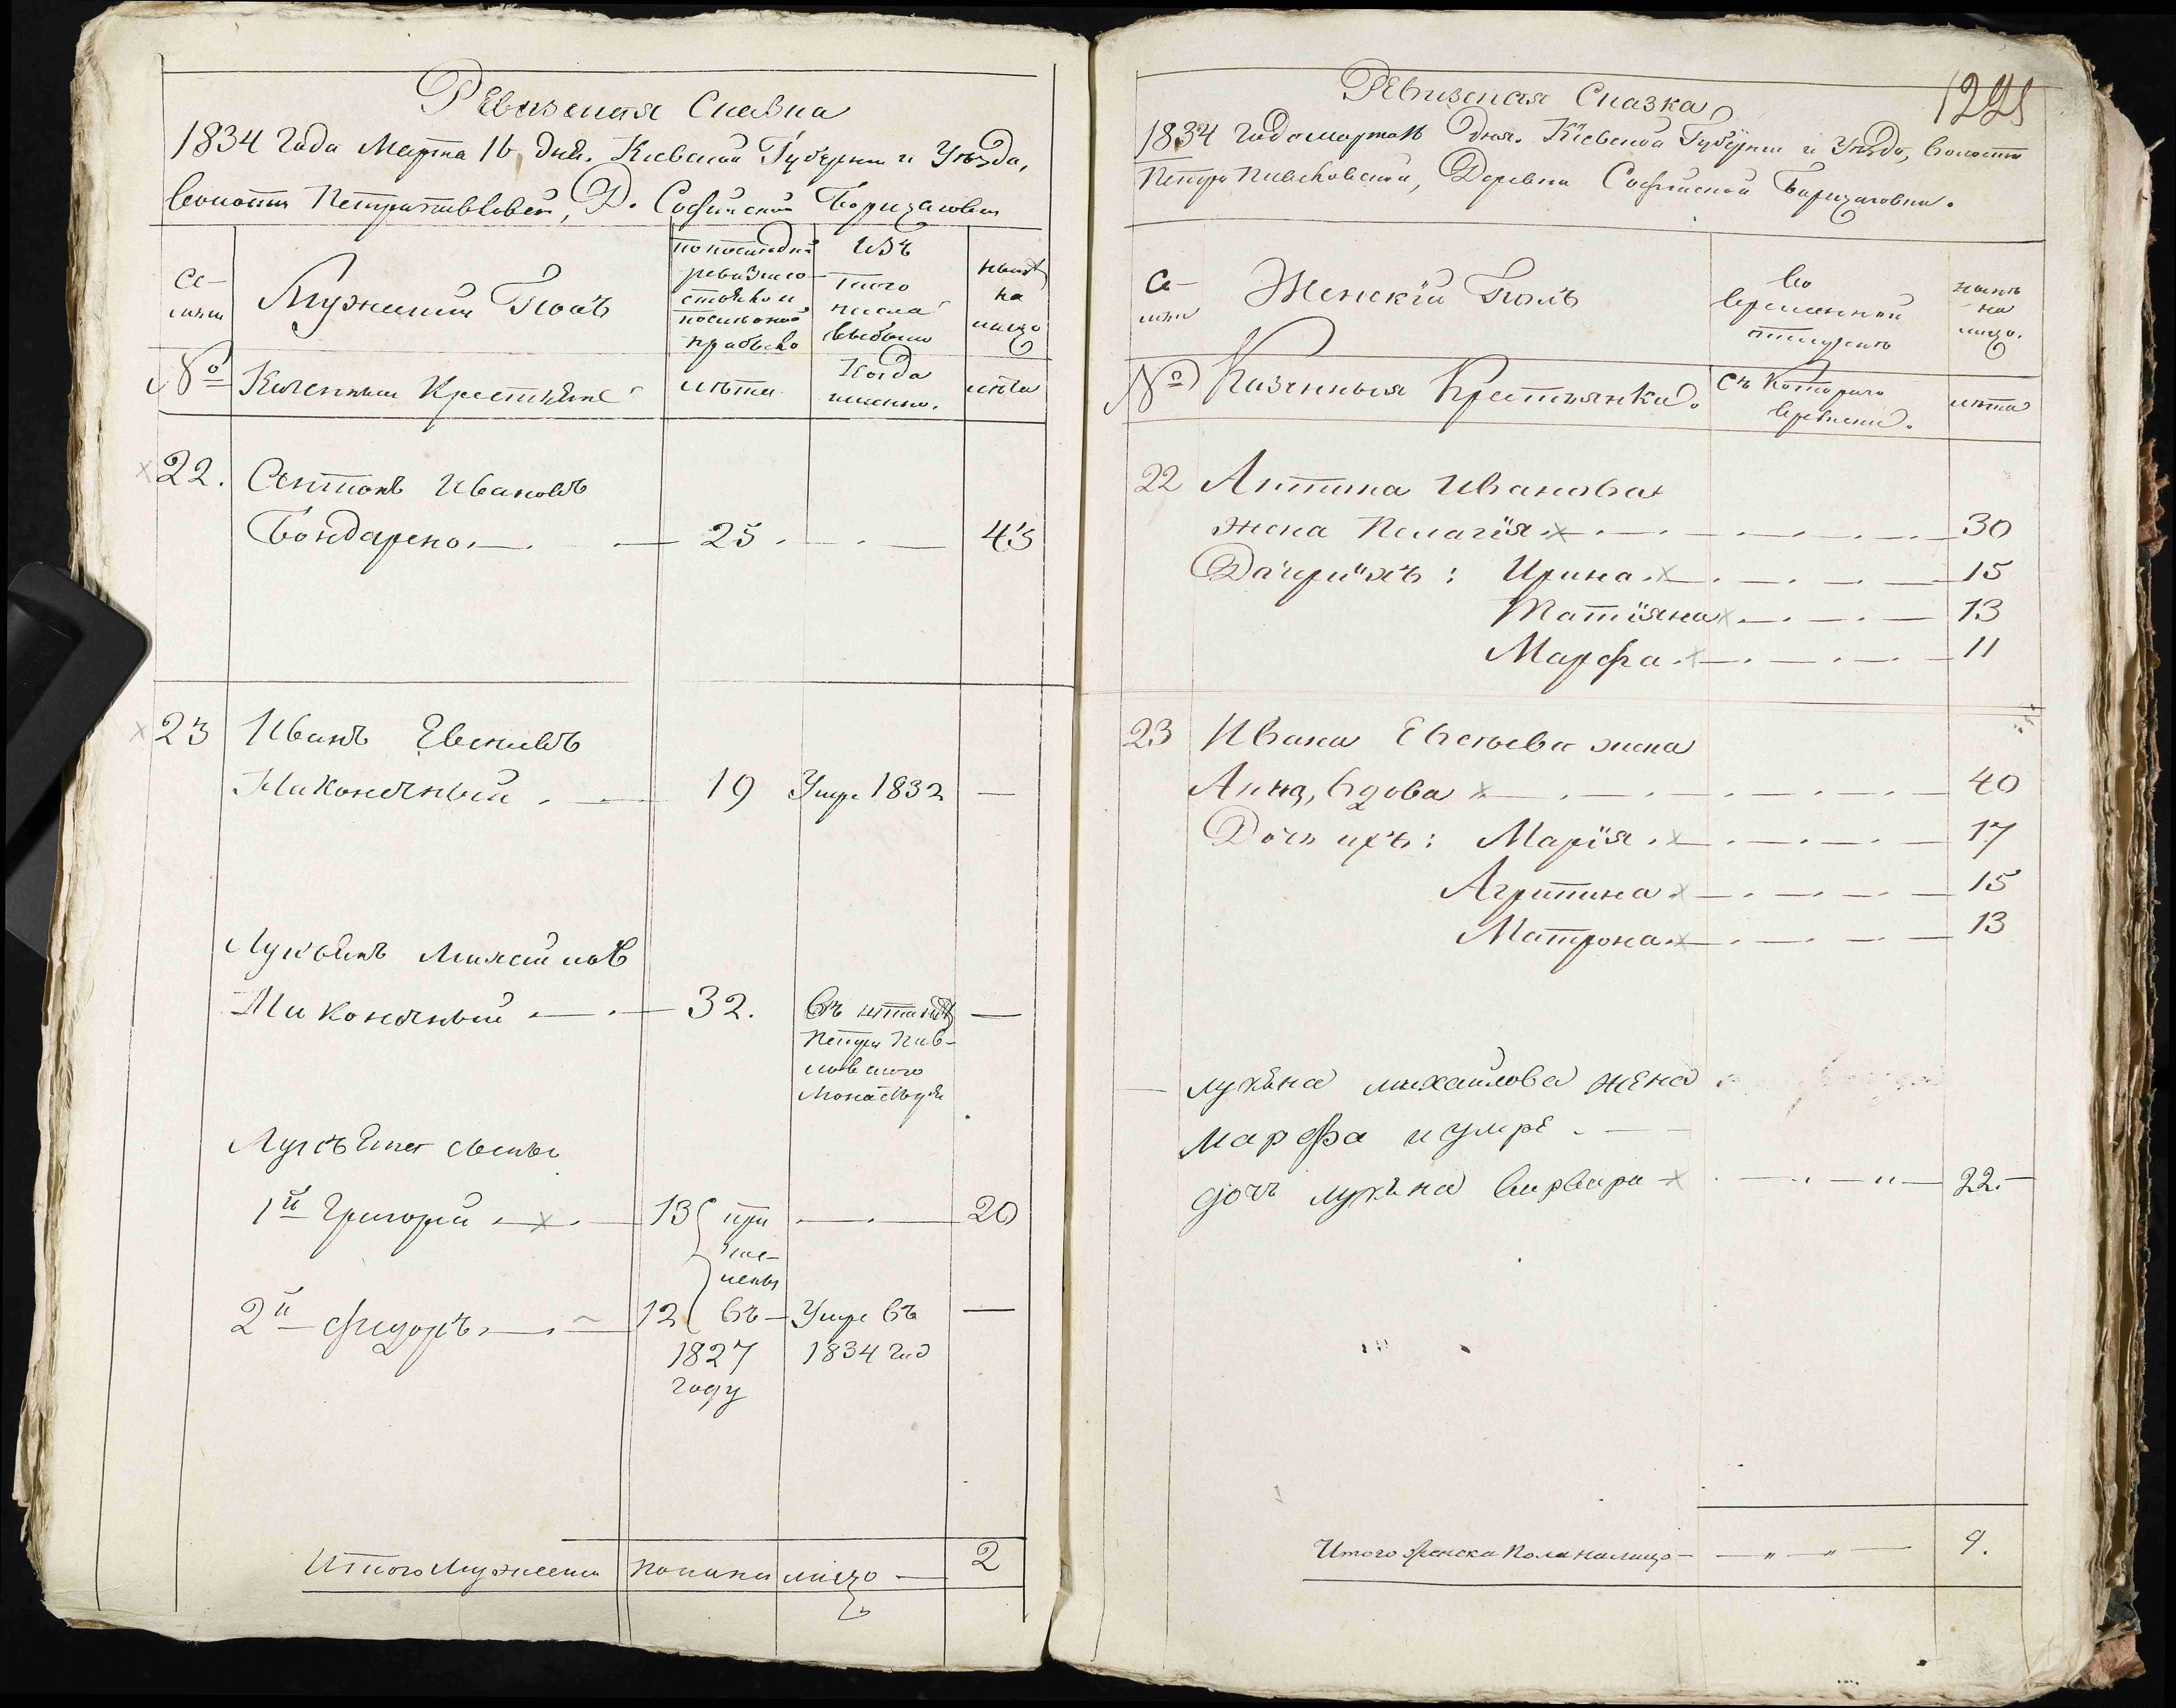 Ревизская Сказка
1834 года Марта 16 дня. Киевской Губернии и Уезда,
Волости Петропавловск, Д. Софийской Борщаговки
Се-
мьи
Мужеский Полъ
по последней
ревизии со-
стояло и
после оной
прибыло
Изъ
того
числа
выбыло
ныне
на
лицо
№
Казенные Крестьяне
лета
Когда
именно.
лета
22. Антонъ Ивановъ
Бондаренко 25 45
23 Иванъ Евсеивъ
Никонечный 19 Умре 1832 —
Лукьянъ Михайловъ
Никонечный 32. въ
Петро Пав-
ловского
Монастыря
Лукьяна сыны
1й Григорій 13 при 20
чис-
лены
2й Фидоръ 12 въ Умре въ —
1827 1834 год
году
Итого Мужеска пола на лицо 2
1221
Ревизская Сказка
1834 года марта 16 дня. Кіевской Губерніи и Уезда, волости
Петро Павловской, Деревни Софийской Борщаговки.
Се-
мьи
Женскій Полъ
Во
временной
отлучкъ
нынъ
на
лицо.
№
Казенныя Крестьянки.
Съ Котораго
времени.
лъта
22 Антона Иванова
жена Пелагія 30
Дочери ихъ: Ирина 15
Татіяна 13
Марфа 11
23 Ивана Евсеева жена
Анна, вдова 40
Дочь ихъ: Марія 17
Агрипина 15
Матрона 13
лукъна михаилова жена
марфа и умре
дочъ лукъна варвара 22.
Итого женска Пола налицо 9.